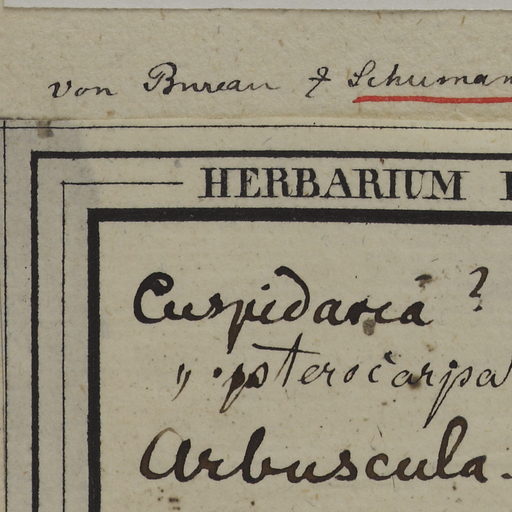 von Bureau & Schuman
HERBARIUM
Cuspidaria ?
" pterocarpa
Arbuscula.